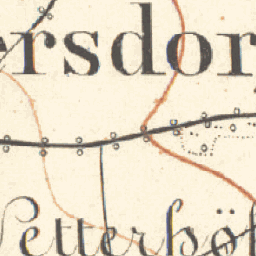 ersdor
etterhöf